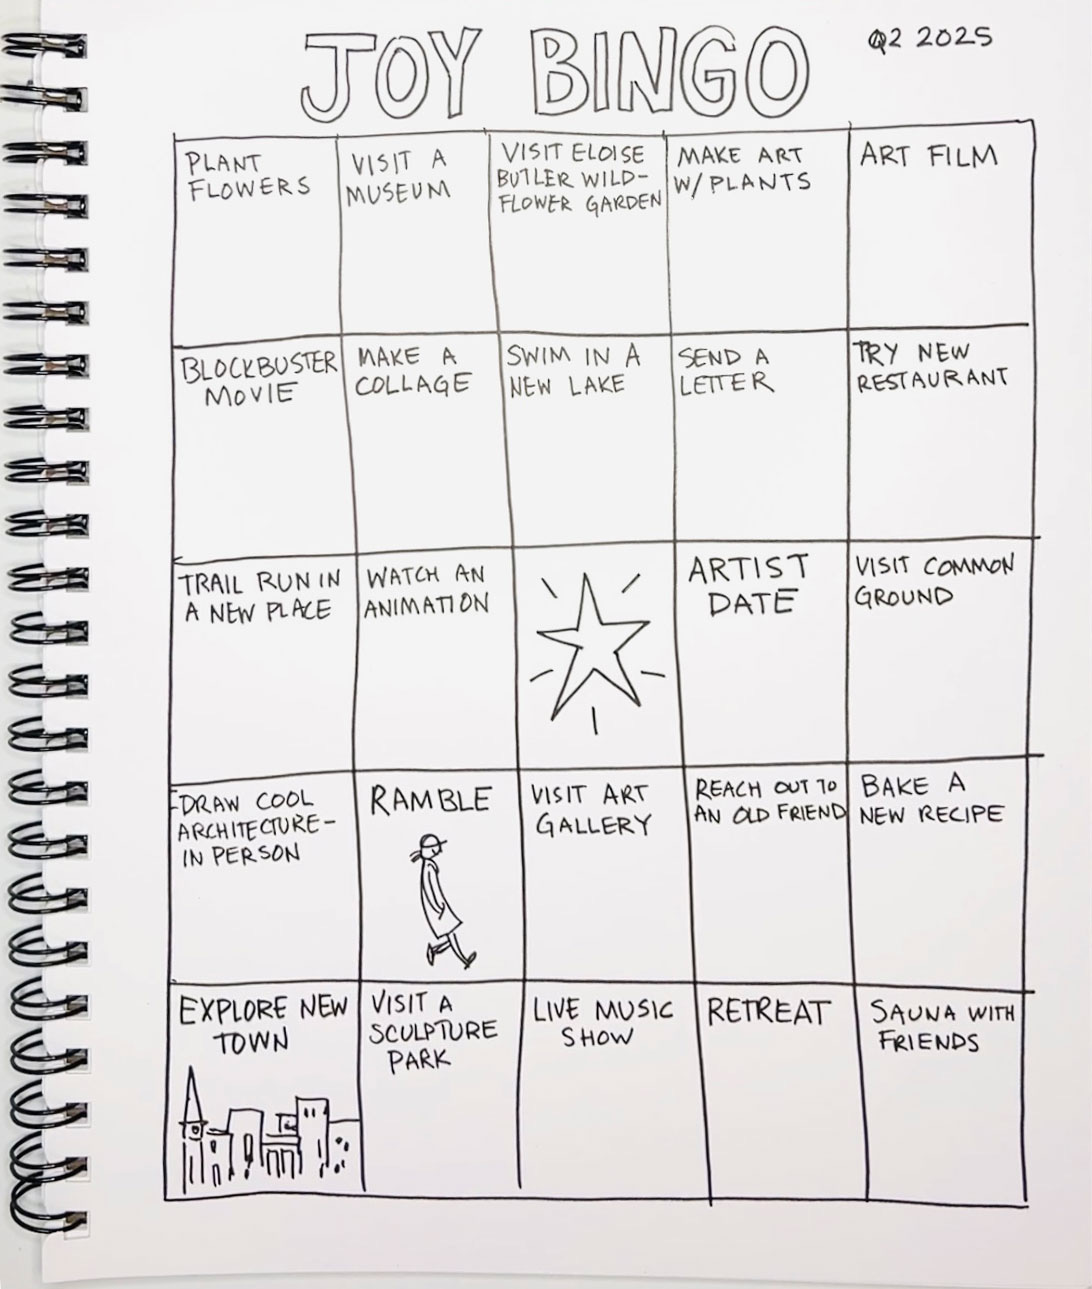 JOY BINGO
Q2 2025
PLANT
FLOWERS
VISIT A
MUSEUM
VISIT ELOISE
BUTLER WILD-
FLOWER GARDEN
MAKE ART
W/ PLANTS
ART FILM
BLOCKBUSTER
MOVIE
MAKE A
COLLAGE
SWIM IN A
NEW LAKE
SEND A
LETTER
TRY NEW
RESTAURANT
TRAIL RUN IN
A NEW PLACE
WATCH AN
ANIMATION
ARTIST
DATE
VISIT COMMON
GROUND
DRAW COOL
ARCHITECTURE-
IN PERSON
RAMBLE
VISIT ART
GALLERY
REACH OUT TO
AN OLD FRIEND
BAKE A
NEW RECIPE
EXPLORE NEW
TOWN
VISIT A
SCULPTURE
PARK
LIVE MUSIC
SHOW
RETREAT
SAUNA WITH
FRIENDS